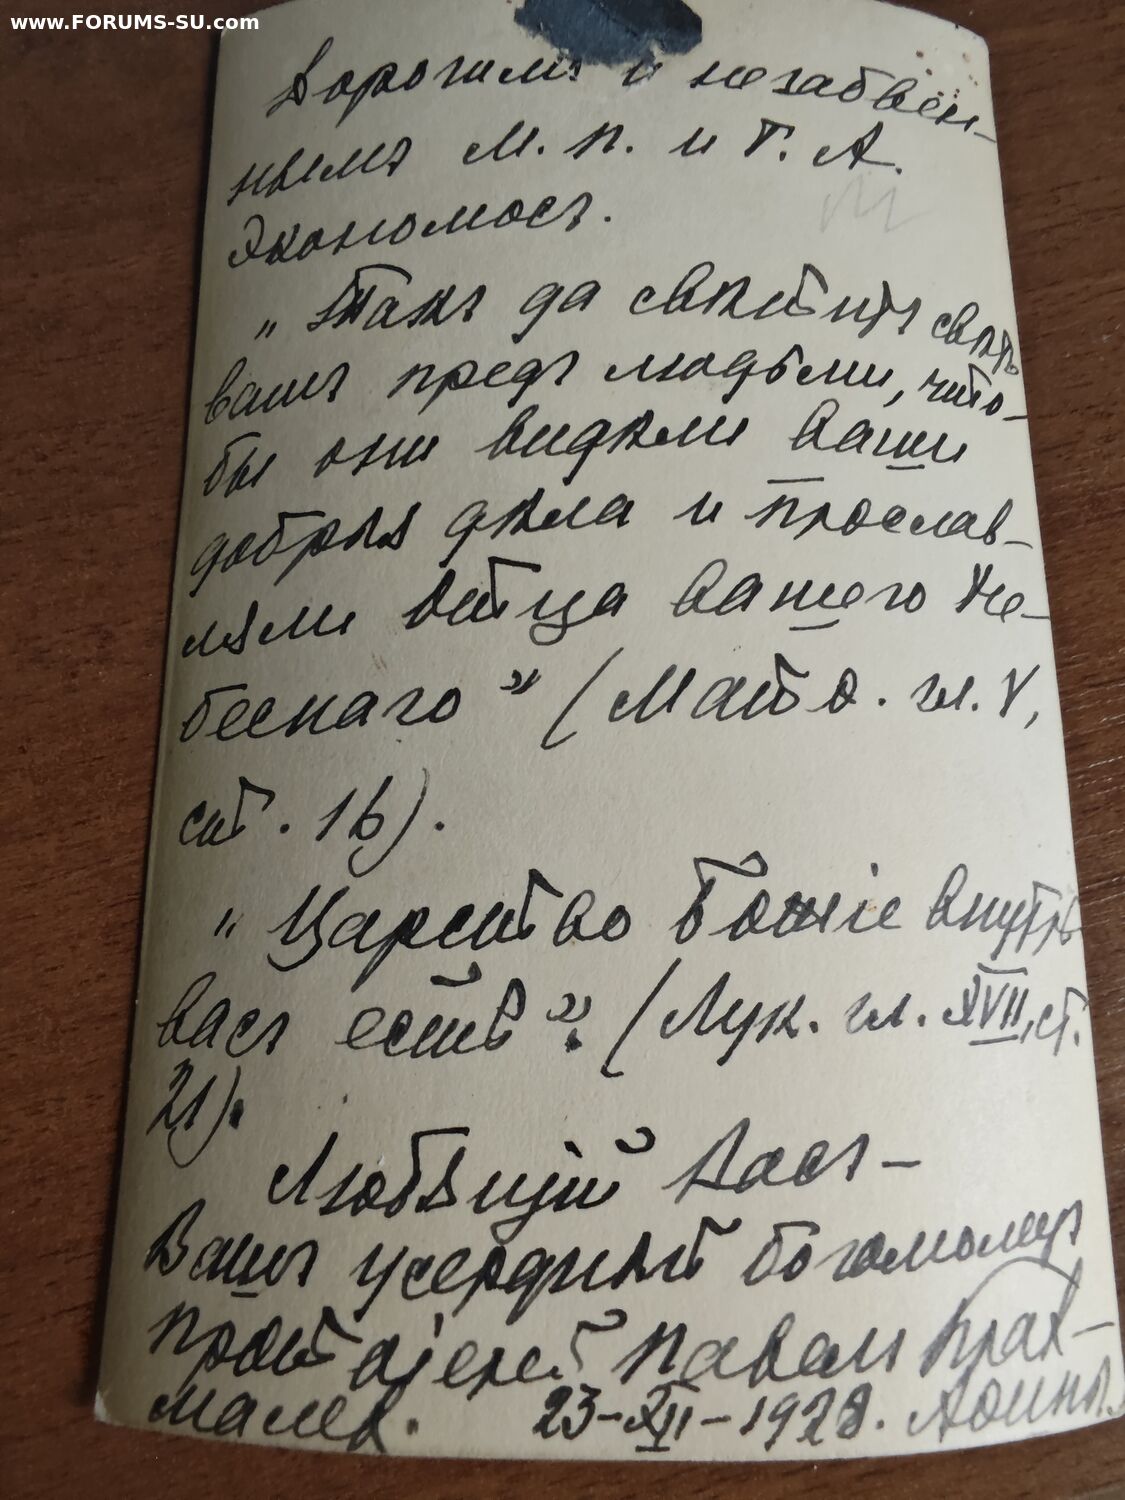 www.FORUMS-SU.com
Дорогимъ и незабвен-
нымъ М. П. и Г. А.
Экономосъ.
„Такъ да свѣтитъ свѣтъ
вашъ предъ людьми, что-
бы они видѣли ваши
добрыя дѣла и прослав-
ляли Отца вашего Не-
беснаго” (Матѳ. гл. V,
ст. 16).
„Царство Божіе внутрь
васъ есть”. (Лук. гл. XVII, ст.
21).
Любящій Васъ –
Вашъ усердный богомолецъ
протоіерей Павелъ
23-XII-1928. Аѳины.